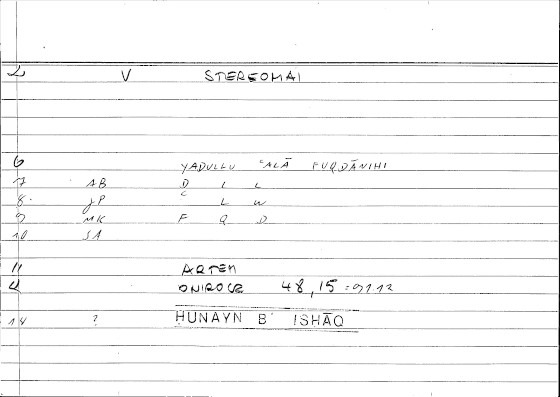 2 V STEREOMAI
6 YADULLU ʿALĀ FUQDĀNIHI
7 AB D L L
8 JP C L W
9 MK F Q D
10 SA
11 ARTEM
4 ONIROCR 48,15 = 91.12
14 ? ḤUNAYN B ISHĀQ